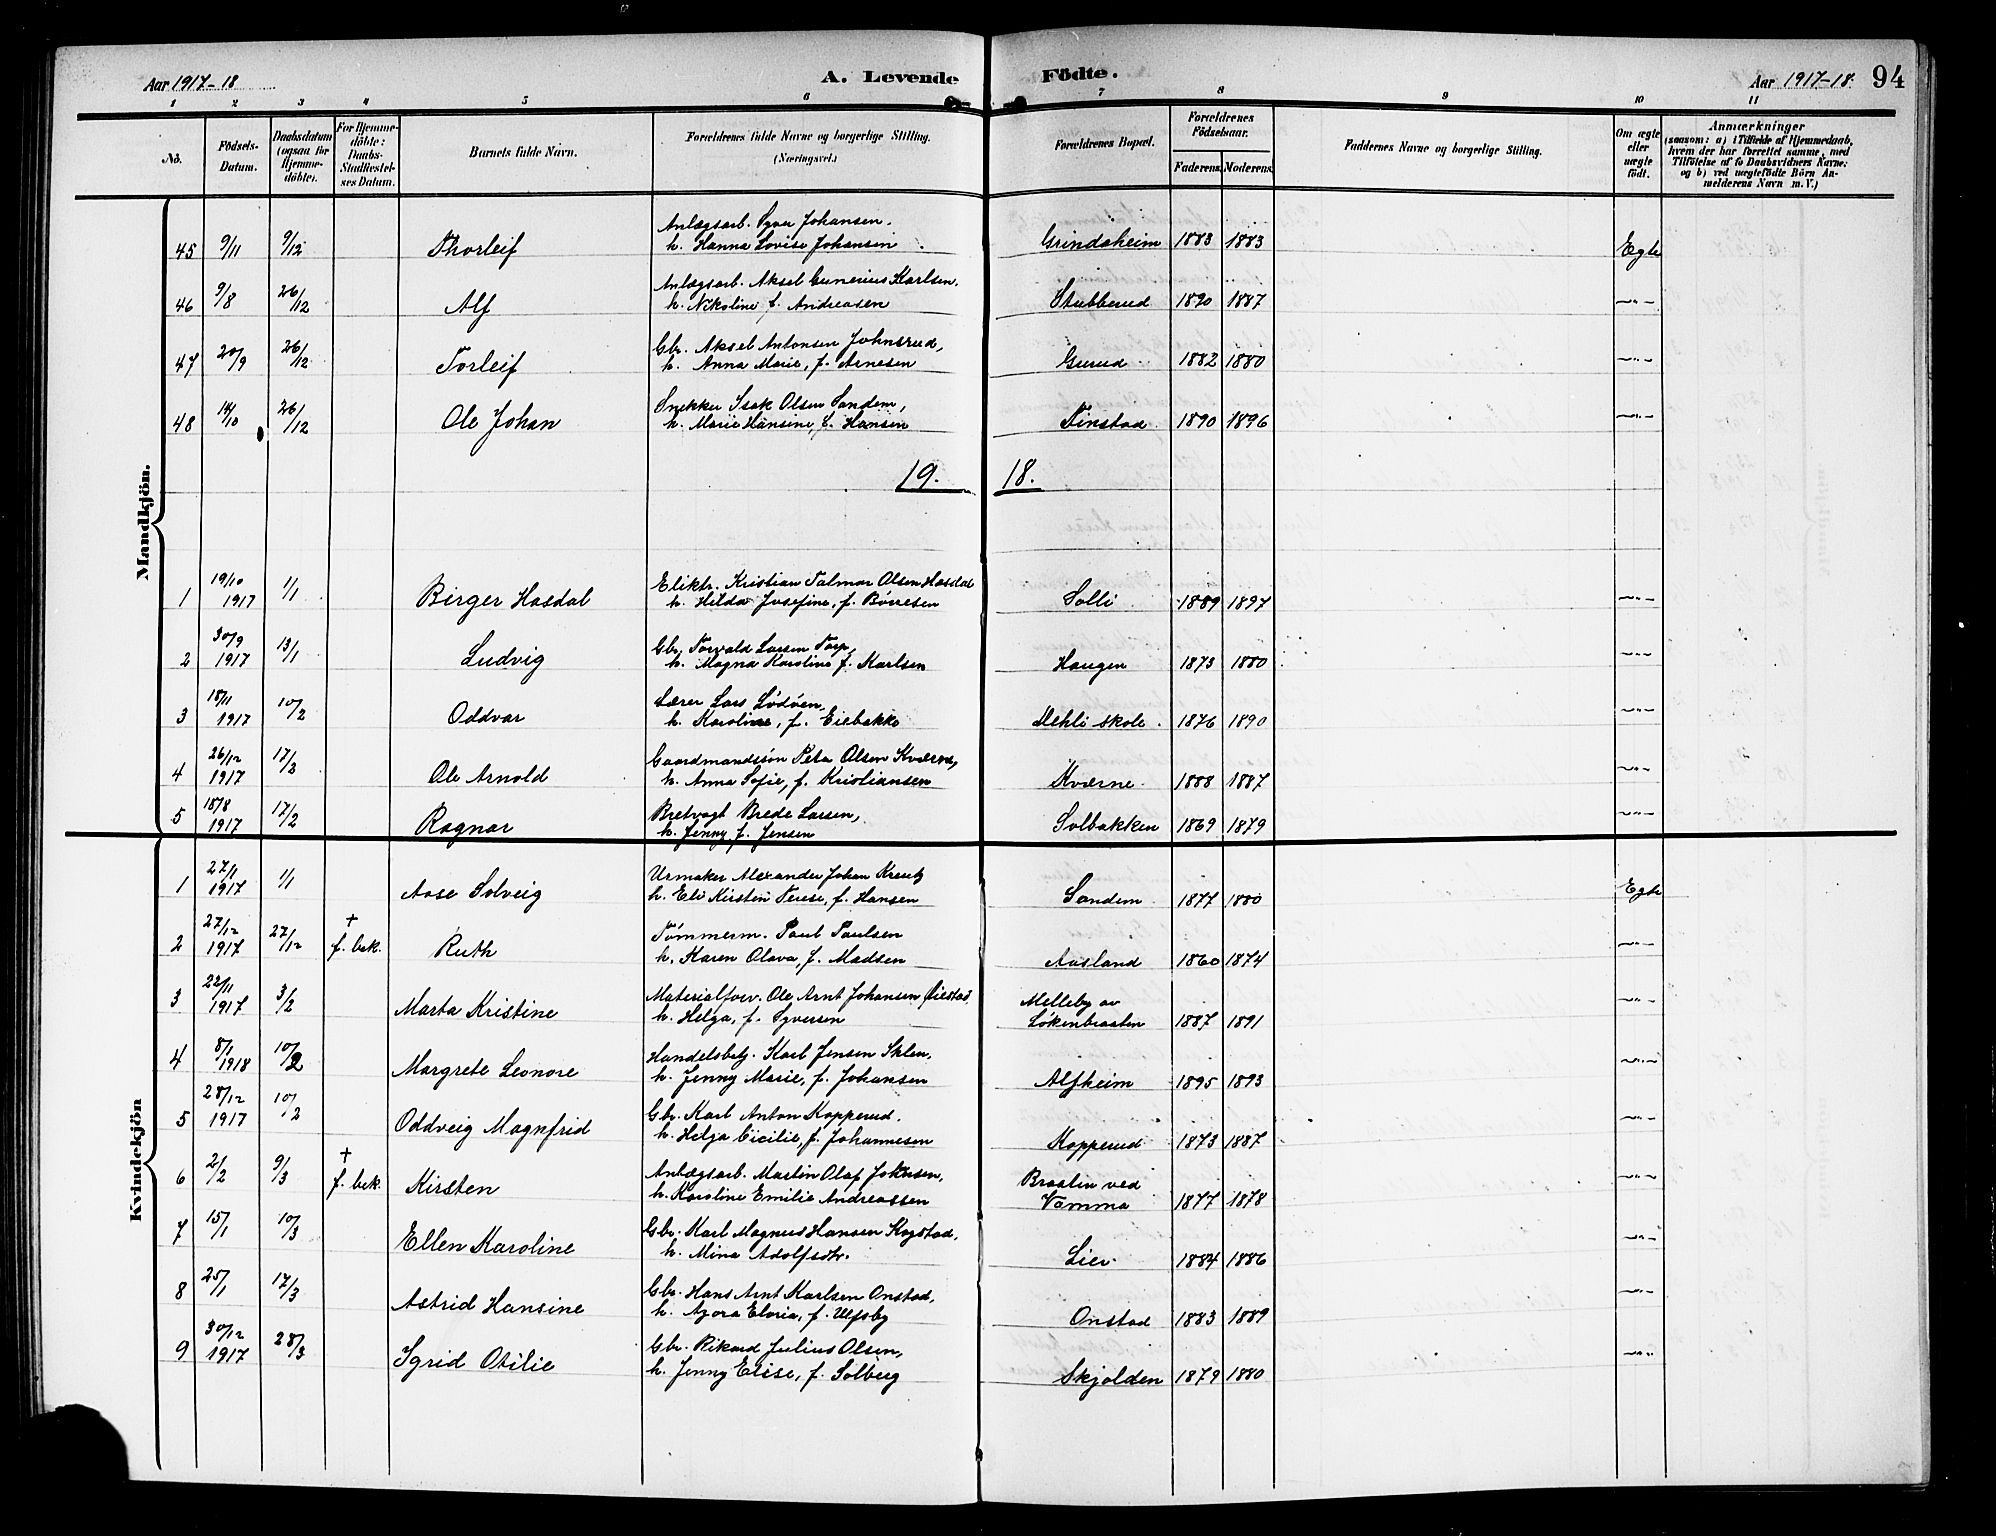 Aar 1917-18
A. Levende
Födte.
Aar 1917-18.
94
1 2 3 4 5 6 7 8 9 10 11
No.
Födsels-Datum.
Daabsdatum (ogsaa for Hjemmedöbte).
For Hjemmedöbte: Daabs-Stadfæstelses Datum.
Barnets fulde Navn.
Forældrenes fulde Navne og borgerlige Stilling.
(Næringsvei.)
Forældrenes Bopæl.
Forældrenes Födselsaar.
Faderens. Moderens.
Faddernes Navne og borgerlige Stilling.
Om ægte eller uægte födt.
Anmærkninger
(saasom: a) i Tilfælde af Hjemmedaab,
hvem der har forrettet samme, med
Tilföielse af to Daabsvidners Navne;
og b) ved uægtefödte Börn Anmelderens Navn m. V.)
Mandkjön.
45 9/11 9/12 Thorleif Anlægsarb. Syver Johansen, Grindaheim 1883 1883 Egte
h. Hanna Lovise Johansen
46 9/8 26/12 Alf Anlægsarb. Aksel Gunerius Karlsen, Stubberud 1890 1887 —"—
h. Nikoline f. Andreasen
47 20/9 26/12 Torleif Gbr. Aksel Antonsen Johnsrud, Gurud 1882 1880 —"—
h. Anna Marie, f. Arnesen
48 14/10 26/12 Ole Johan Snekker Isak Olsen Sandem, Finstad 1890 1896 —"—
h. Marie Hansine, f. Hansen
19. 18.
1 19/10 1917 1/1 Birger Hasdal Elektr. Kristian Talmar Olsen Hasdal Solli 1889 1897 —"—
h. Hilda Josefine, f. Börresen
2 30/9 1917 13/1 Ludvig Gbr. Torvald Larsen Torp, Haugen 1873 1880 —"—
h. Magna Karoline f. Karlsen
3 18/11 1917 10/2 Oddvar Lærer Lars Lödöen, Mehli skole. 1876 1890 —"—
h. Karoline, f. Eiebakke
4 26/12 1917 17/2 Ole Arnold Gaardmandssön Peter Olsen Kværne, Kværne. 1888 1887 —"—
h. Anna Sofie, f. Kristiansen
5 18/8 1917 17/2 Ragnar Bretvagt Brede Larsen, Solbakken 1869 1879 —"—
h. Jenny f. Jensen
Kvindekjön
1 27/11 1917 1/1 Aase Solveig Urmaker Alexander Johan Kreutz Sandem 1877 1880 Egte
h. Eli Kirsten, f. Hansen
2 27/12 1917 27/12 † f. bek. Ruth Tömmerm. Paul Paulsen Aasland 1860 1874 —"—
h. Karen Olava, f. Madsen
3 22/11 1917 3/2 Marta Kristine Materialforv. Ole Arnt Johansen Öiestad, Melleby av Lökenbraaten 1887 1891 —"—
h. Helga, f. Syversen
4 8/1 1918 10/2 Margrete Leonore Handelsbetj. Karl Jensen Sklen, Alfheim 1895 1893 —"—
h. Jenny Marie, f. Johansen
5 28/12 1917 10/2 Oddveig Magnfrid Gbr. Karl Anton Kopperud, Kopperud 1873 1887 —"—
h. Helga Cicilie, f. Johannesen
6 2/2 9/3 † f. bek. Kirsten Anlægsarb. Martin Olaf Johnsen, Braaten ved Vamma 1877 1878 —"—
h. Karoline Emilie Andreassen
7 15/1 10/3 Ellen Karoline Gbr. Karl Magnus Hansen Kagstad, Lier. 1884 1886 —"—
h. Mina Adolfsdtr.
8 25/1 17/3 Astrid Hansine Gbr. Hans Arnt Karlsen Onstad, Onstad 1883 1889 —"—
h. Azora Eloria, f. Ulfsby
9 30/12 1917 28/3 Sgrid Otilie Gbr. Rikard Julius Olsen, Skjolden 1879 1880 —"—
h. Jenny Elise, f. Solberg